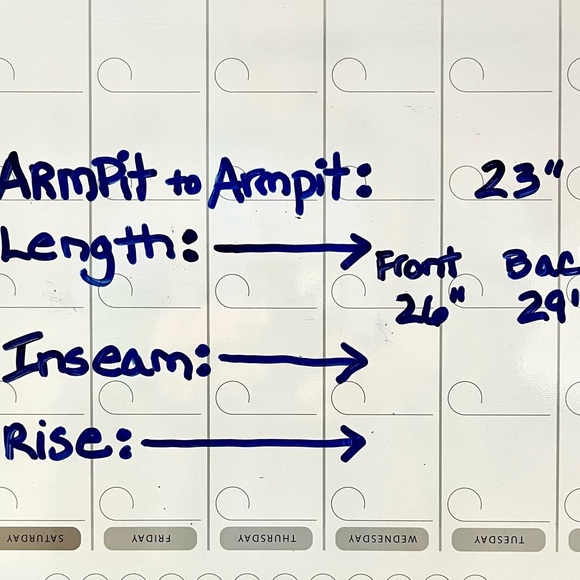 ARmPit to Armpit: 23"
Length: → Front Bac
26" 29"
Inseam: →
Rise: →
SATURDAY FRIDAY THURSDAY WEDNESDAY TUESDAY